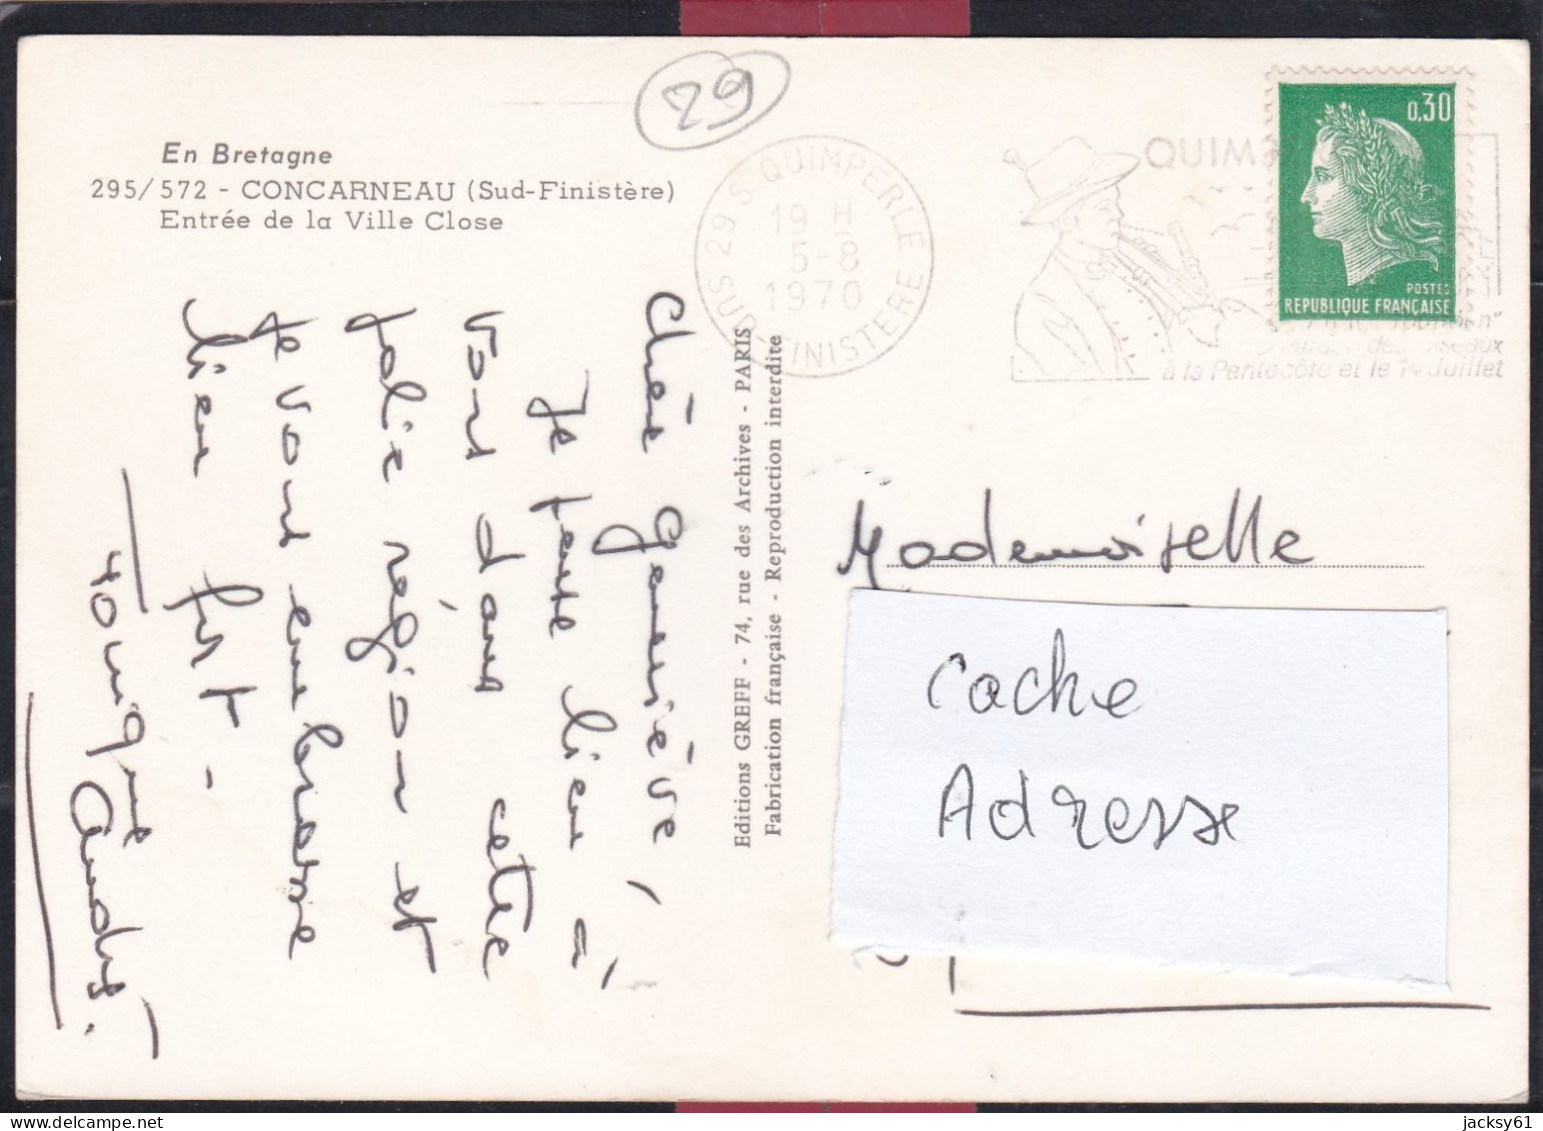 29
En Bretagne
295/572 - CONCARNEAU (Sud-Finistère)
Entrée de la Ville Close
29 S QUIMPERLE
19 H
5-8
1970
SUD-FINISTERE
QUIM
à la Pentecôte et le 14 Juillet
0,30
POSTES
REPUBLIQUE FRANÇAISE
Chère Geneviève,
Je pense bien à
vous dans cette
jolie région et
je vous embrasse
bien fort -
Editions GREFF - 74, rue des Archives - PARIS
Fabrication française - Reproduction interdite
Mademoiselle
Cache
Adresse
jacksy61